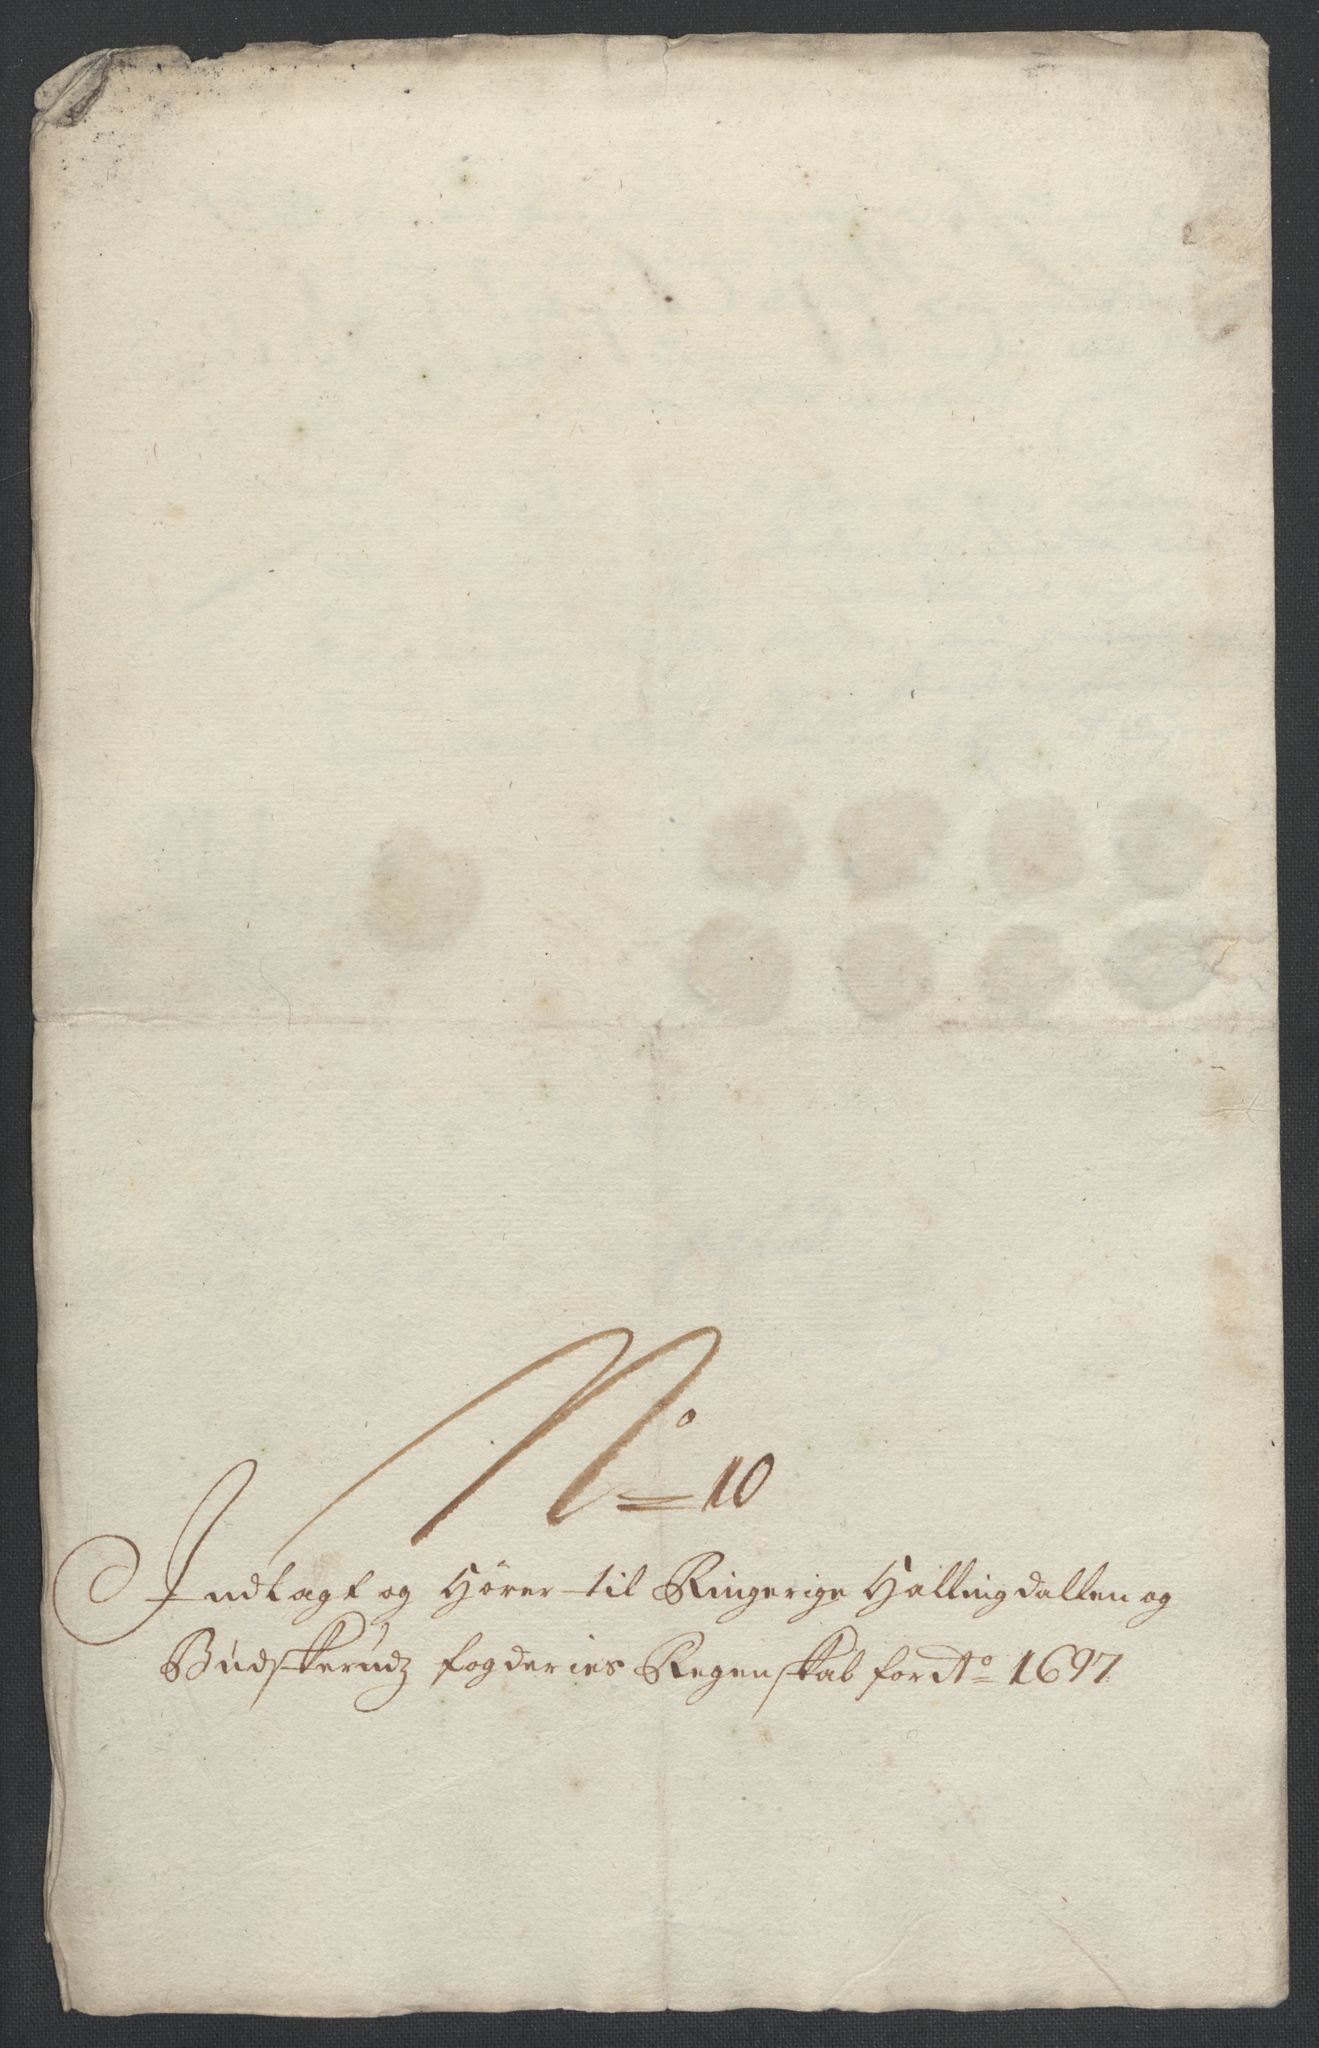 No 10
Indlagt og Hører til Ringerige Hallingdallen og
Budskerudz fogderies Regenskab for Ao 1697